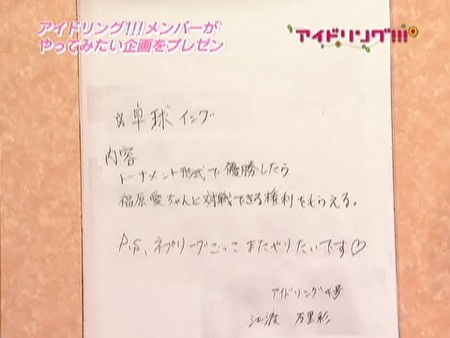 アイドリング!!!メンバーが
やってみたい企画をプレゼン
アイドリング!!!
卓球イング
内容
トーナメント形式で優勝したら
福原愛ちゃんと対戦できる権利をもらえる。
P.S、ネプリーグごっこまたやりたいです♡
アイドリング4号
江渡 万里彩